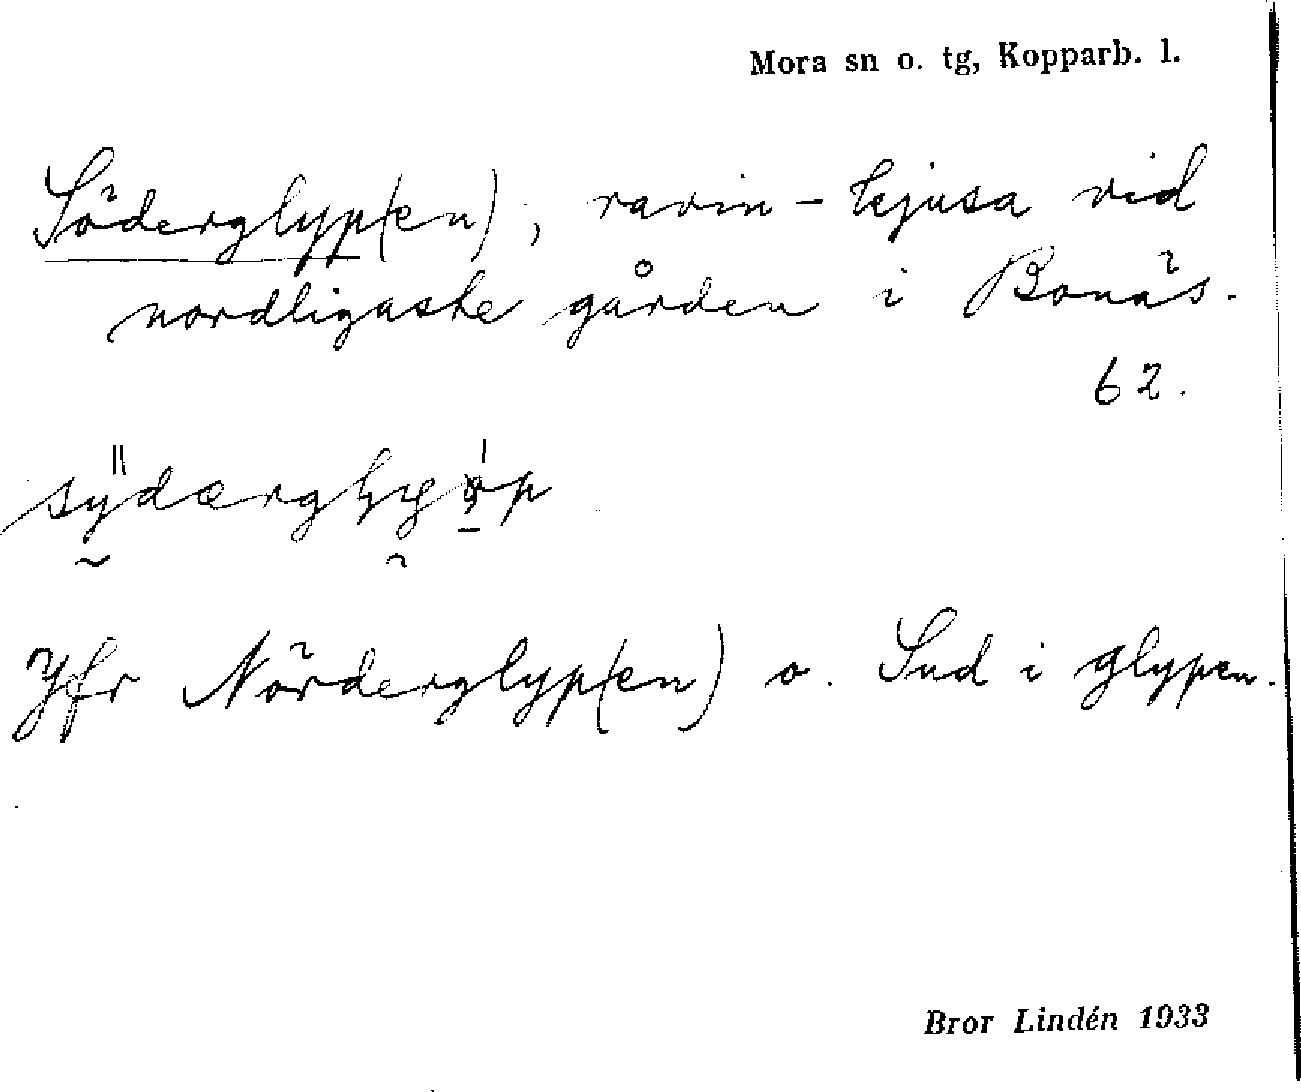 Mora sn o. tg, Kopparb. l.
Söderglyp(en), ravin – kjusa vid
nordligaste gården i Bonäs.
62.
Jfr Nörderglyp(en) o. Sud i glypen.
Bror Lindén 1933